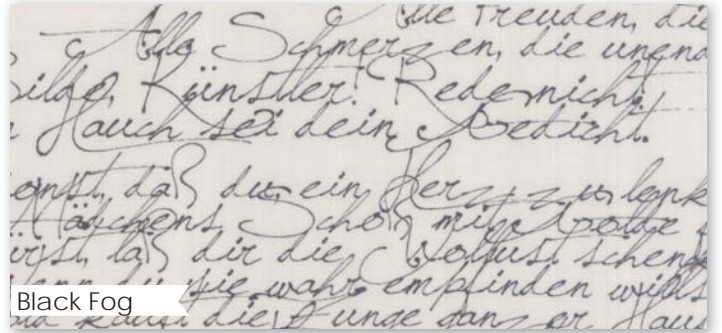 Alle Freuden, die
Alle Schmerzen, die unend
Bilde, Künstler! Rede nicht!
Hauch sei dein Gedicht.
daß du ein Herz zu lenk
Mädchens Schoß mit Golde
laß dir die Wollust schenk
du sie wahr empfinden willst
die Zunge ganz er
Black Fog